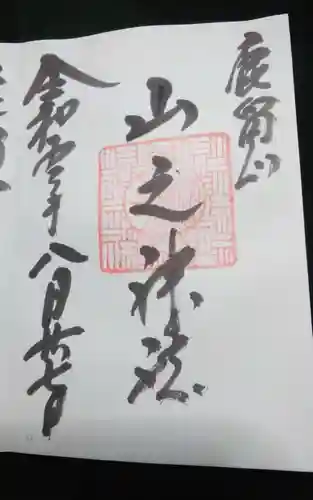 鹿留山
山之神社
令和年八月廿七日